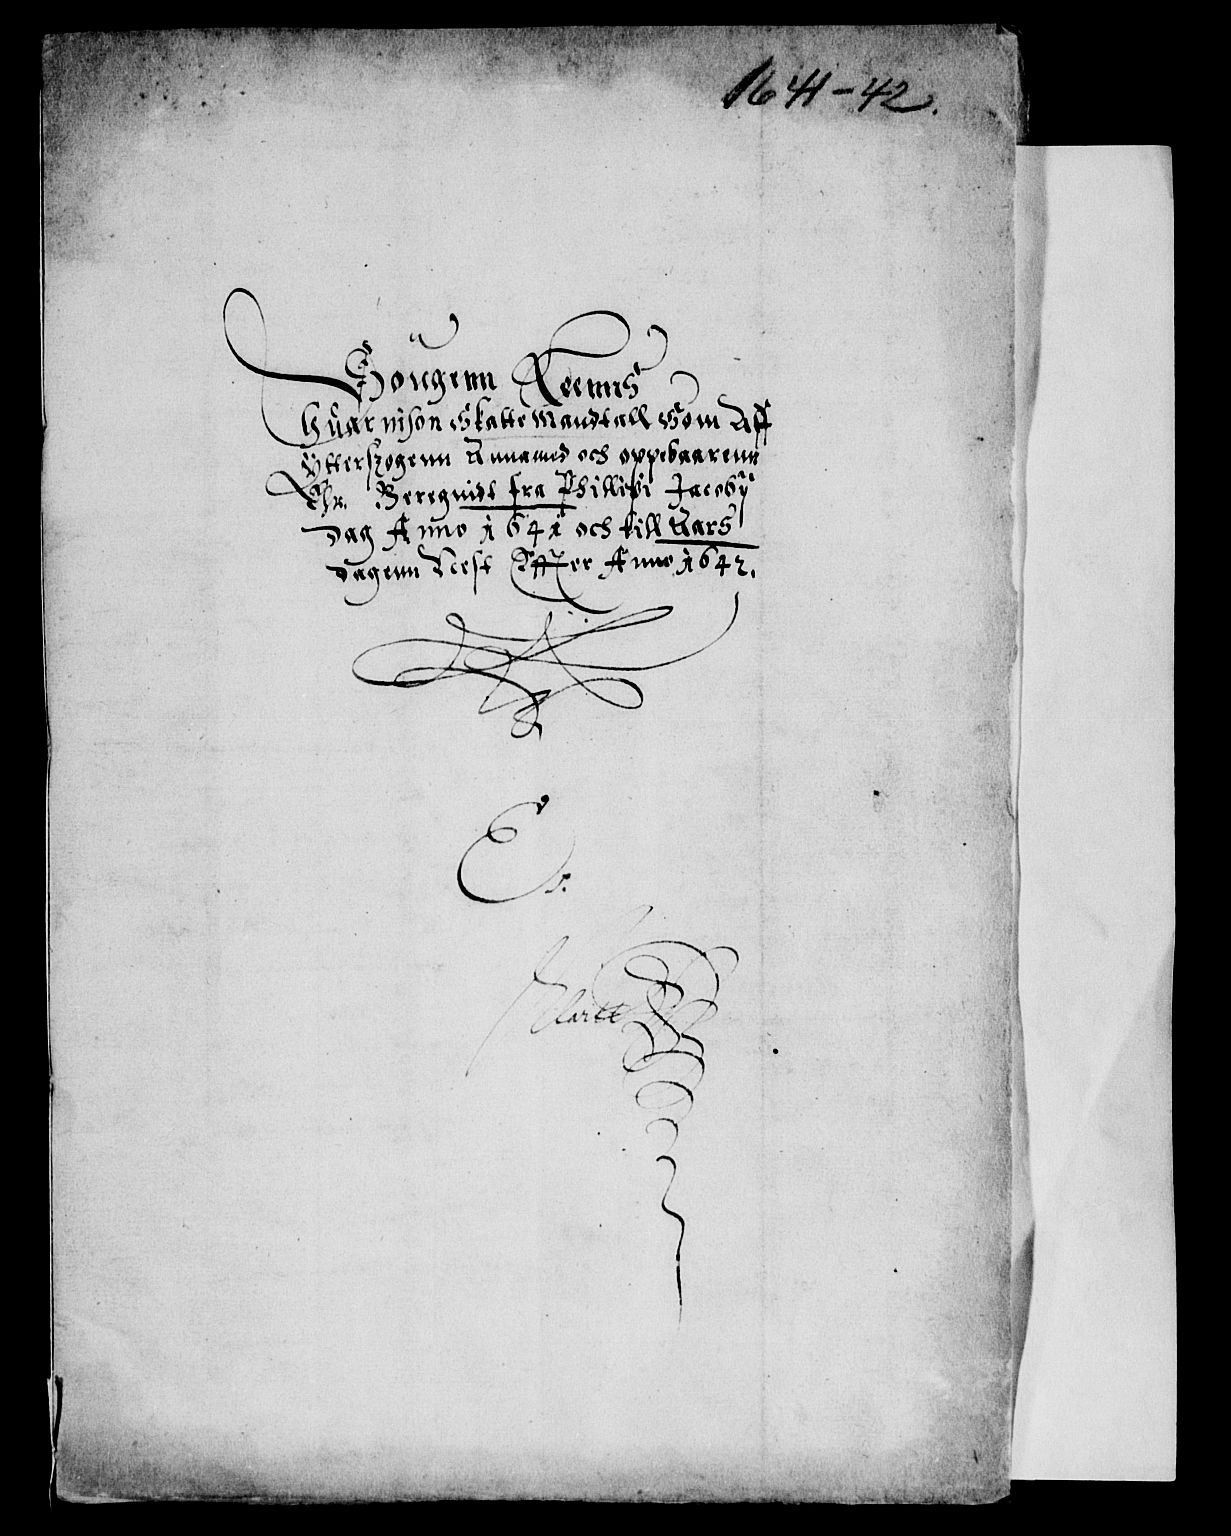 1641-42.
Sougenn Leenns
Guarnison Skatte Mandtall Som Aff
Ytterszogenn Annamed och oppebaarenn
Er. Beregnidt fra Philliphi Jacoby
dag Anno 1641 och till Aars
dagenn Nest Effter Anno 1642.